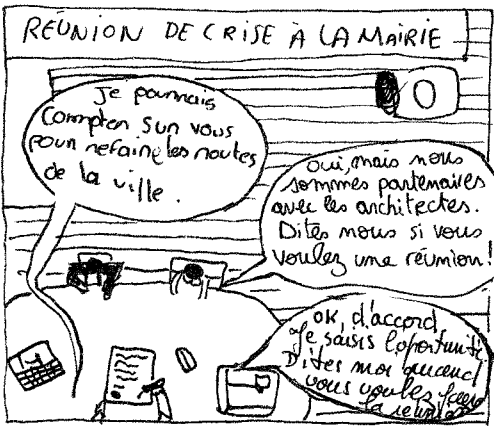 RÉUNION DE CRISE À LA MAIRIE
Je pourrais
compter sur vous
pour refaire les routes
de la ville.
Oui, mais nous
sommes partenaires
avec les architectes.
Dites nous si vous
voulez une réunion !
OK, d'accord,
Je saisis l'oportunité
Dites moi quand
vous voulez faire
la réunion